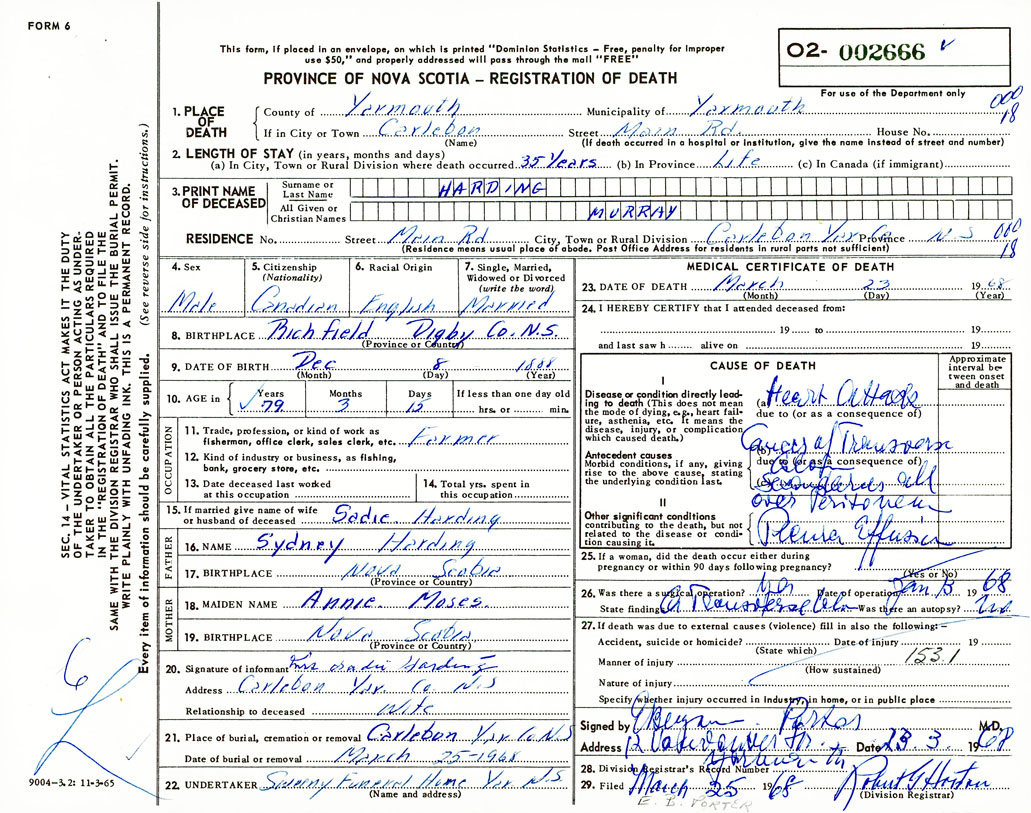 FORM 6
This form, if placed in an envelope, on which is printed "Dominion Statistics – Free, penalty for improper
use $50," and properly addressed will pass through the mail "FREE"
PROVINCE OF NOVA SCOTIA – REGISTRATION OF DEATH
02- 002666
For use of the Department only
000
18
1. PLACE OF DEATH
County of Yarmouth Municipality of Yarmouth
If in City or Town Carlebon Street Main Rd. House No.
(Name) (If death occurred in a hospital or institution, give the name instead of street and number)
2. LENGTH OF STAY (in years, months and days)
(a) In City, Town or Rural Division where death occurred 35 Years (b) In Province Life (c) In Canada (if immigrant)
3. PRINT NAME OF DECEASED
Surname or Last Name HARDING
All Given or Christian Names MURRAY
RESIDENCE No. Street Main Rd City, Town or Rural Division Carlebon Yar. Co Province N S
000
18
(Residence means usual place of abode. Post Office Address for residents in rural parts not sufficient)
4. Sex Male
5. Citizenship (Nationality) Canadian
6. Racial Origin English
7. Single, Married, Widowed or Divorced (write the word) Married
8. BIRTHPLACE Richfield Digby Co. N.S.
(Province or Country)
9. DATE OF BIRTH Dec 8 1888
(Month) (Day) (Year)
10. AGE in Years 79 Months 3 Days 15 If less than one day old
hrs. or min.
OCCUPATION
11. Trade, profession, or kind of work as
fisherman, office clerk, sales clerk, etc. Farmer
12. Kind of industry or business, as fishing,
bank, grocery store, etc.
13. Date deceased last worked
at this occupation
14. Total yrs. spent in
this occupation
15. If married give name of wife
or husband of deceased Sadie Harding
FATHER
16. NAME Sydney Harding
17. BIRTHPLACE Nova Scotia
(Province or Country)
MOTHER
18. MAIDEN NAME Annie Moses.
19. BIRTHPLACE Nova Scotia
(Province or Country)
20. Signature of informant Mrs Sadie Harding
Address Carlebon Yar. Co. N.S
Relationship to deceased Wife
21. Place of burial, cremation or removal Carlebon Yar. Co N.S
Date of burial or removal March 25-1968
22. UNDERTAKER Funeral Home Yar. N.S
(Name and address)
MEDICAL CERTIFICATE OF DEATH
23. DATE OF DEATH March 23 1968
(Month) (Day) (Year)
24. I HEREBY CERTIFY that I attended deceased from:
19 to 19
and last saw h alive on 19
CAUSE OF DEATH
Approximate interval between onset and death
I
Disease or condition directly leading to death (This does not mean
the mode of dying, e.g., heart failure, asthenia, etc. It means the
disease, injury, or complication
which caused death.)
(a) Heart Attack
due to (or as a consequence of)
Antecedent causes
Morbid conditions, if any, giving
rise to the above cause, stating
the underlying condition last.
(b) Cancer of Transverse
Colon
due to (or as a consequence of)
(c) Secondaries all
over Peritoneum
II
Other significant conditions
contributing to the death, but not
related to the disease or condition causing it.
Pleura Effusion
25. If a woman, did the death occur either during
pregnancy or within 90 days following pregnancy?
(Yes or No)
26. Was there a surgical operation? Yes Date of operation Jan 13 1968
State findings Ca Transverse Colon Was there an autopsy? No
27. If death was due to external causes (violence) fill in also the following:–
Accident, suicide or homicide? Date of injury 19
(State which)
153.1
Manner of injury
(How sustained)
Nature of injury
Specify whether injury occurred in industry, in home, or in public place
Signed by M.D.
Address Date 23.3. 1968
28. Division Registrar's Record Number
29. Filed March 25 1968 Robert G Horton
(Division Registrar)
E. B. PORTER
SEC. 14 – VITAL STATISTICS ACT MAKES IT THE DUTY
OF THE UNDERTAKER OR PERSON ACTING AS UNDER-
TAKER TO OBTAIN ALL THE PARTICULARS REQUIRED
IN THE "REGISTRATION OF DEATH" AND TO FILE THE
SAME WITH THE DIVISION REGISTRAR WHO SHALL ISSUE THE BURIAL PERMIT.
WRITE PLAINLY WITH UNFADING INK. THIS IS A PERMANENT RECORD.
Every item of information should be carefully supplied. (See reverse side for instructions.)
9004–3.2: 11-3-65